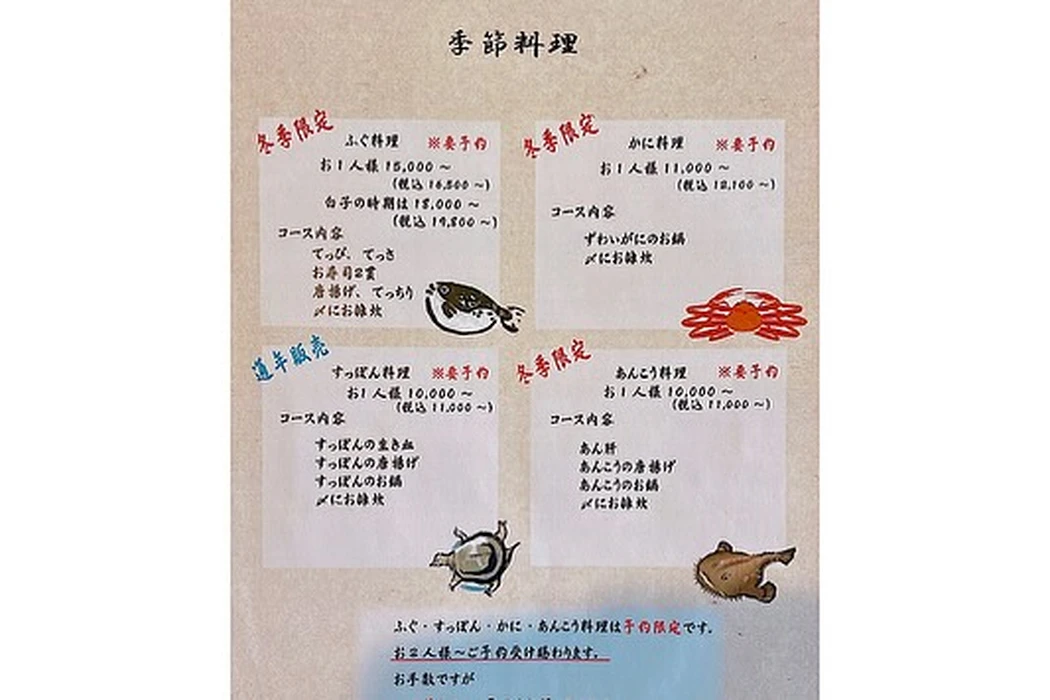 季節料理
冬季限定
ふぐ料理 ※要予約
お1人様 15,000 ~
(税込 16,500 ~)
白子の時期は 18,000 ~
(税込 19,800 ~)
コース内容
てっぴ、てっさ
お寿司2貫
唐揚げ、てっちり
〆にお雑炊
冬季限定
かに料理 ※要予約
お1人様 11,000 ~
(税込 12,100 ~)
コース内容
ずわいがにのお鍋
〆にお雑炊
通年販売
すっぽん料理 ※要予約
お1人様 10,000 ~
(税込 11,000 ~)
コース内容
すっぽんの生き血
すっぽんの唐揚げ
すっぽんのお鍋
〆にお雑炊
冬季限定
あんこう料理 ※要予約
お1人様 10,000 ~
(税込 11,000 ~)
コース内容
あん肝
あんこうの唐揚げ
あんこうのお鍋
〆にお雑炊
ふぐ・すっぽん・かに・あんこう料理は予約限定です。
お2人様~ご予約受け賜わります。
お手数ですが